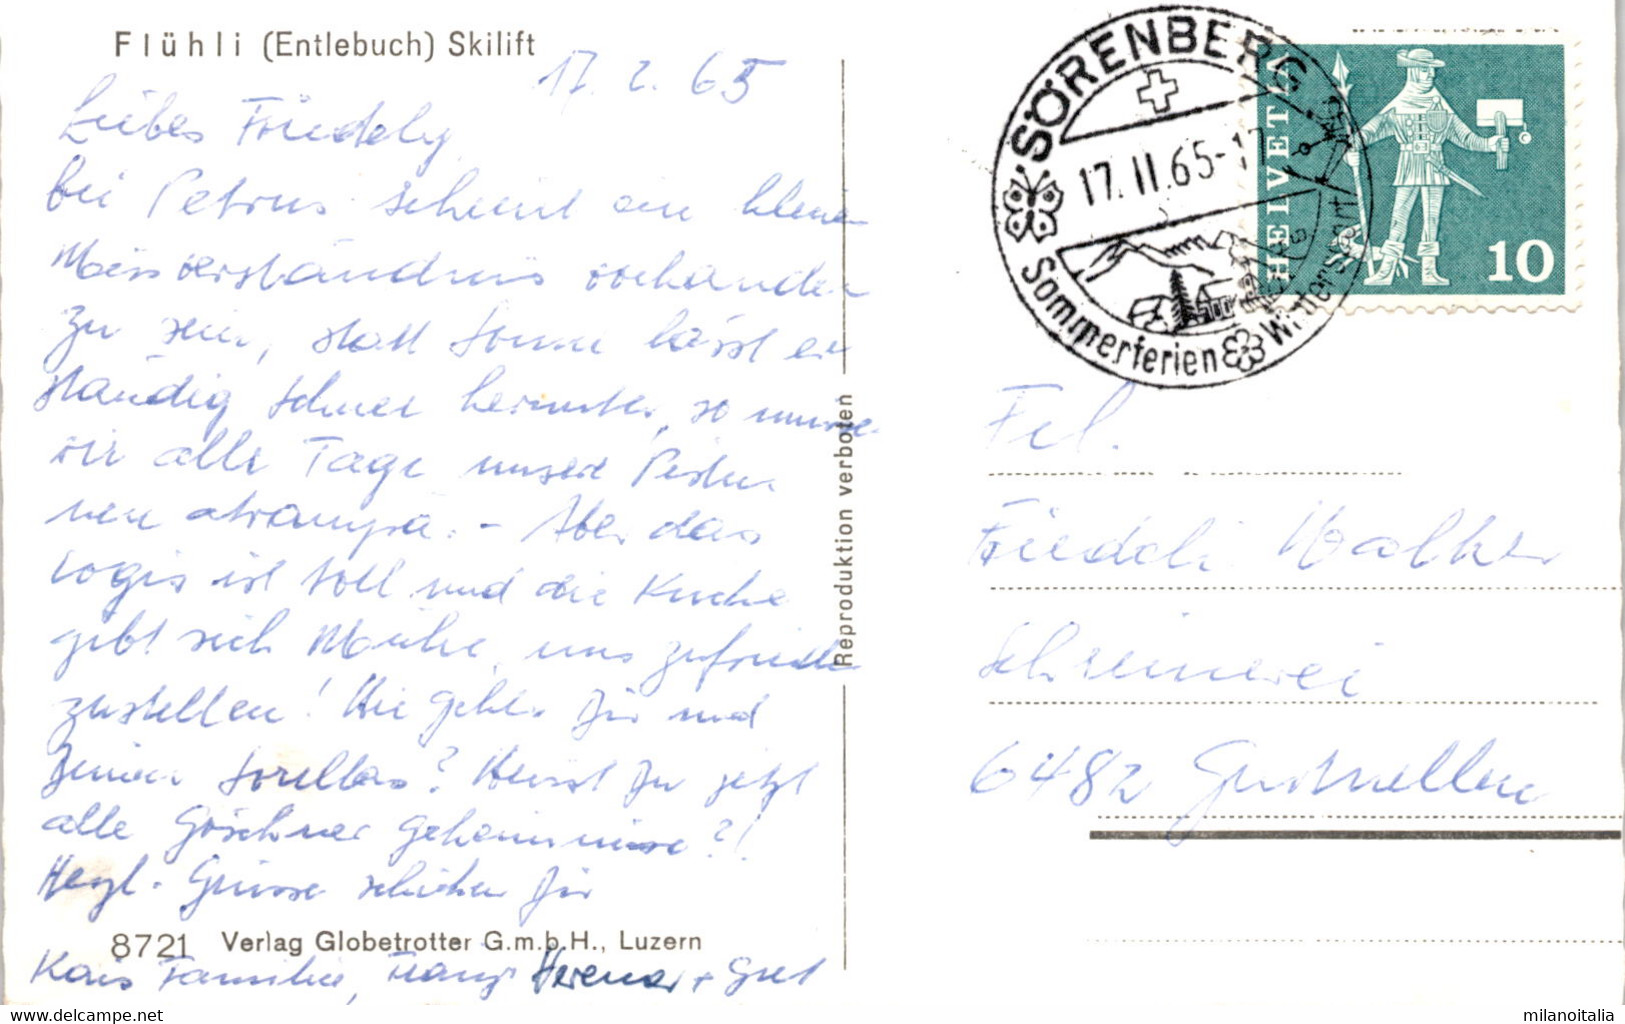 Flühli (Entlebuch) Skilift
17. 2. 65
Liebes Friedely,
bei Petrus scheint ein kleines
Missverständnis vorhanden
zu sein, statt Sonne lässt er
ständig Schnee herunter, so müssen
wir alle Tage unsere
Aber das
Logis ist toll und die Küche
gibt sich Mühe, uns zufrieden
zustellen! Wie geht es Dir und
Deinen Sorellas? Weisst Du jetzt
alle Göschner Geheimnisse?!
Herzl. Grüsse schicken Dir
8721 Verlag Globetrotter G.m.b.H., Luzern
Familie, Franz, Verena + Gret
Reproduktion verboten
SÖRENBERG
17. II. 65-17
Sommerferien Wintersport
HELVETIA
10
Frl.
Friedeli Walker
Schreinerei
6482 Gurtnellen
milanoitalia
www.delcampe.net